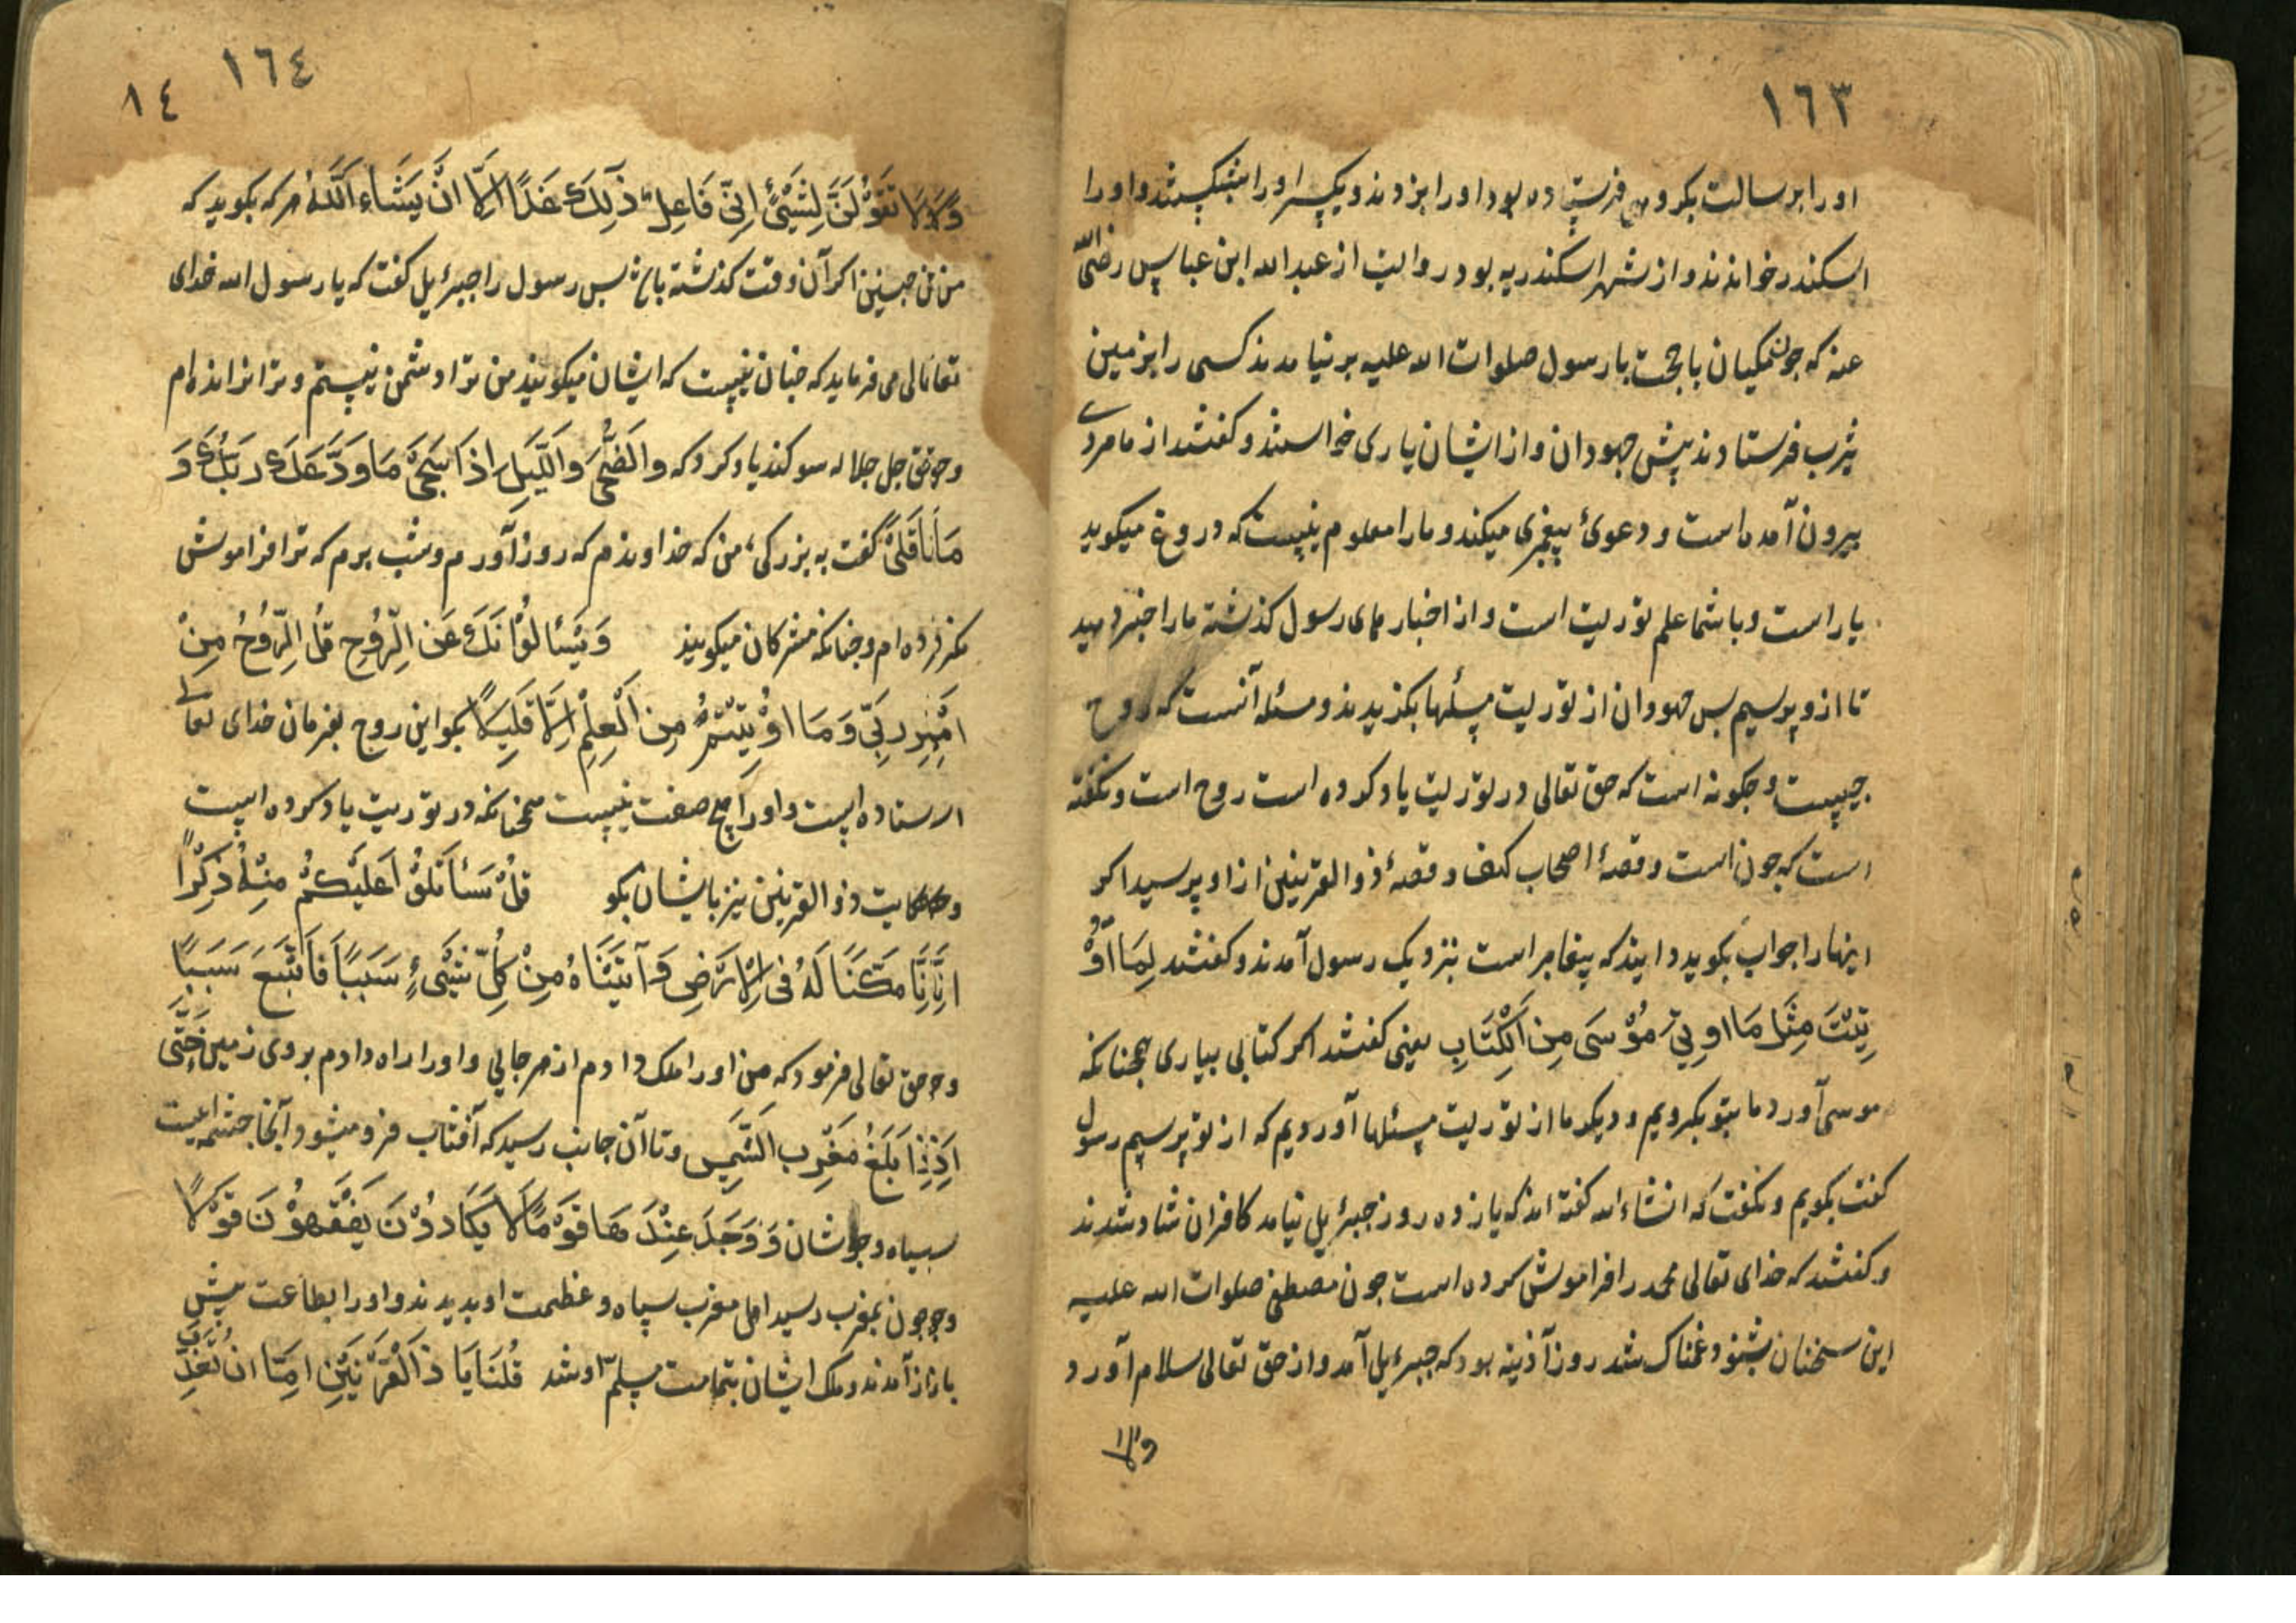 ١٦٣
او را برسالت بکروهی فرستاده بود او را بزدند و یکسر او را بشکستند و او را
اسکندر خواندند و از شهر اسکندریه بود روایت از عبد الله ابن عباس رضی الله
عنه که جون مکیان با حجت با رسول صلوات الله علیه بر نیامدند کسی را بزمین
یثرب فرستادند پیش جهودان و از ایشان یاری خواستند و کفتند از ما مردی
بیرون آمده است و دعوئ پیغمبری میکند و ما را معلوم نیست که دروغ میکوید
یا راست و با شما علم توریت است و از اخبار های رسول کذشته ما را خبر دهید
تا از و پرسیم بس جهودان از توریت مسئلها بکزیدند و مسئله آنست که روح
جیست و جکونه است که حق تعالی در توریت یاد کرده است روح است و نکفته
است که جون است و قصهٔ اصحاب کهف و قصهٔ ذو القرنین از او پرسید اکر
اینها را جواب بکوید دانید که پیغامبر است بنزدیک رسول آمدند و کفتند لِمَا اُوْ
تِیْتَ مِثْلَ مَا اوتِیَ مُوْسَی مِنَ الْکِتَابِ یعنی کفتند اکر کتابی بیاری همجنانکه
موسی آورد ما بتو بکرویم و دیکر ما از توریت مسئلها آوردیم که از تو پرسیم رسول
کفت بکویم و نکفت که انشاء الله کفته اند که یازده روز جبرئیل نیامد کافران شاد شدند
و کفتند که خدای تعالی محمد را فراموش کرده است جون مصطفی صلوات الله علیه
این سخنان بشنود غمناک شد روز آذینه بود که جبرئیل آمد و از حق تعالی سلام آورد
ولا
١٦٤
٨٤
وَلَا تَقُوْلَنَّ لِشَیْئٍ اِنِّی فَاعِلٌ ذٰلِکَ غَدًا اِلَّا اَنْ یَشَاءَ اللّٰهُ هر که بکوید که
من جنین اکر آن وقت کذشته باشد بس رسول را جبرئیل کفت که یا رسول الله خدای
تعالی می فرماید که جنان نیست که ایشان میکویند من ترا دشمن نیستم و ترا نرانده ام
و حق جل جلاله سوکند یاد کرد که وَالضُّحَی وَاللَّیْلِ اِذَا سَجَی مَا وَدَّعَکَ رَبُّکَ وَ
مَا قَلَی کفت به بزرکی من که خداوندم که روز آورم و شب برم که ترا فراموش
نکرده ام و جنانکه مشرکان میکویند وَیَسْئَلُوْنَکَ عَنِ الرُّوْحِ قُلِ الرُّوْحُ مِنْ
اَمْرِ رَبِّی وَمَا اُوْتِیْتُمْ مِنَ الْعِلْمِ اِلَّا قَلِیْلًا بکو این روح بفرمان خدای تعالی
ایستاده است و او را هیچ صفت نیست همجنانکه در توریت یاد کرده است
و حکایت ذو القرنین نیز بایشان بکو قُلْ سَأَتْلُوْا عَلَیْکُمْ مِنْهُ ذِکْرًا
اِنَّا مَکَّنَّا لَهُ فِی الْاَرْضِ وَآتَیْنَاهُ مِنْ کُلِّ شَیْیءٍ سَبَبًا فَاَتْبَعَ سَبَبًا
و حق تعالی فرمود که من او را ملک دادم از هر جایی و او را راه دادم بر وی زمین حَتَّی
اِذَا بَلَغَ مَغْرِبَ الشَّمْسِ و تا آن جانب رسید که آفتاب فرو میشود و آنجا جشمه ایست
سیاه و جوشان وَوَجَدَ عِنْدَهَا قَوْمًا لَا یَکَادُوْنَ یَفْقَهُوْنَ قَوْلًا
و جون بمغرب رسید اهل مغرب سپاه و عظمت او بدیدند و او را بطاعت پیش
باز آمدند و ملک ایشان بتمامت مسلم او شد قُلْنَا یَا ذَا الْقَرْنَیْنِ اِمَّا اَنْ تُعَذِّبَ